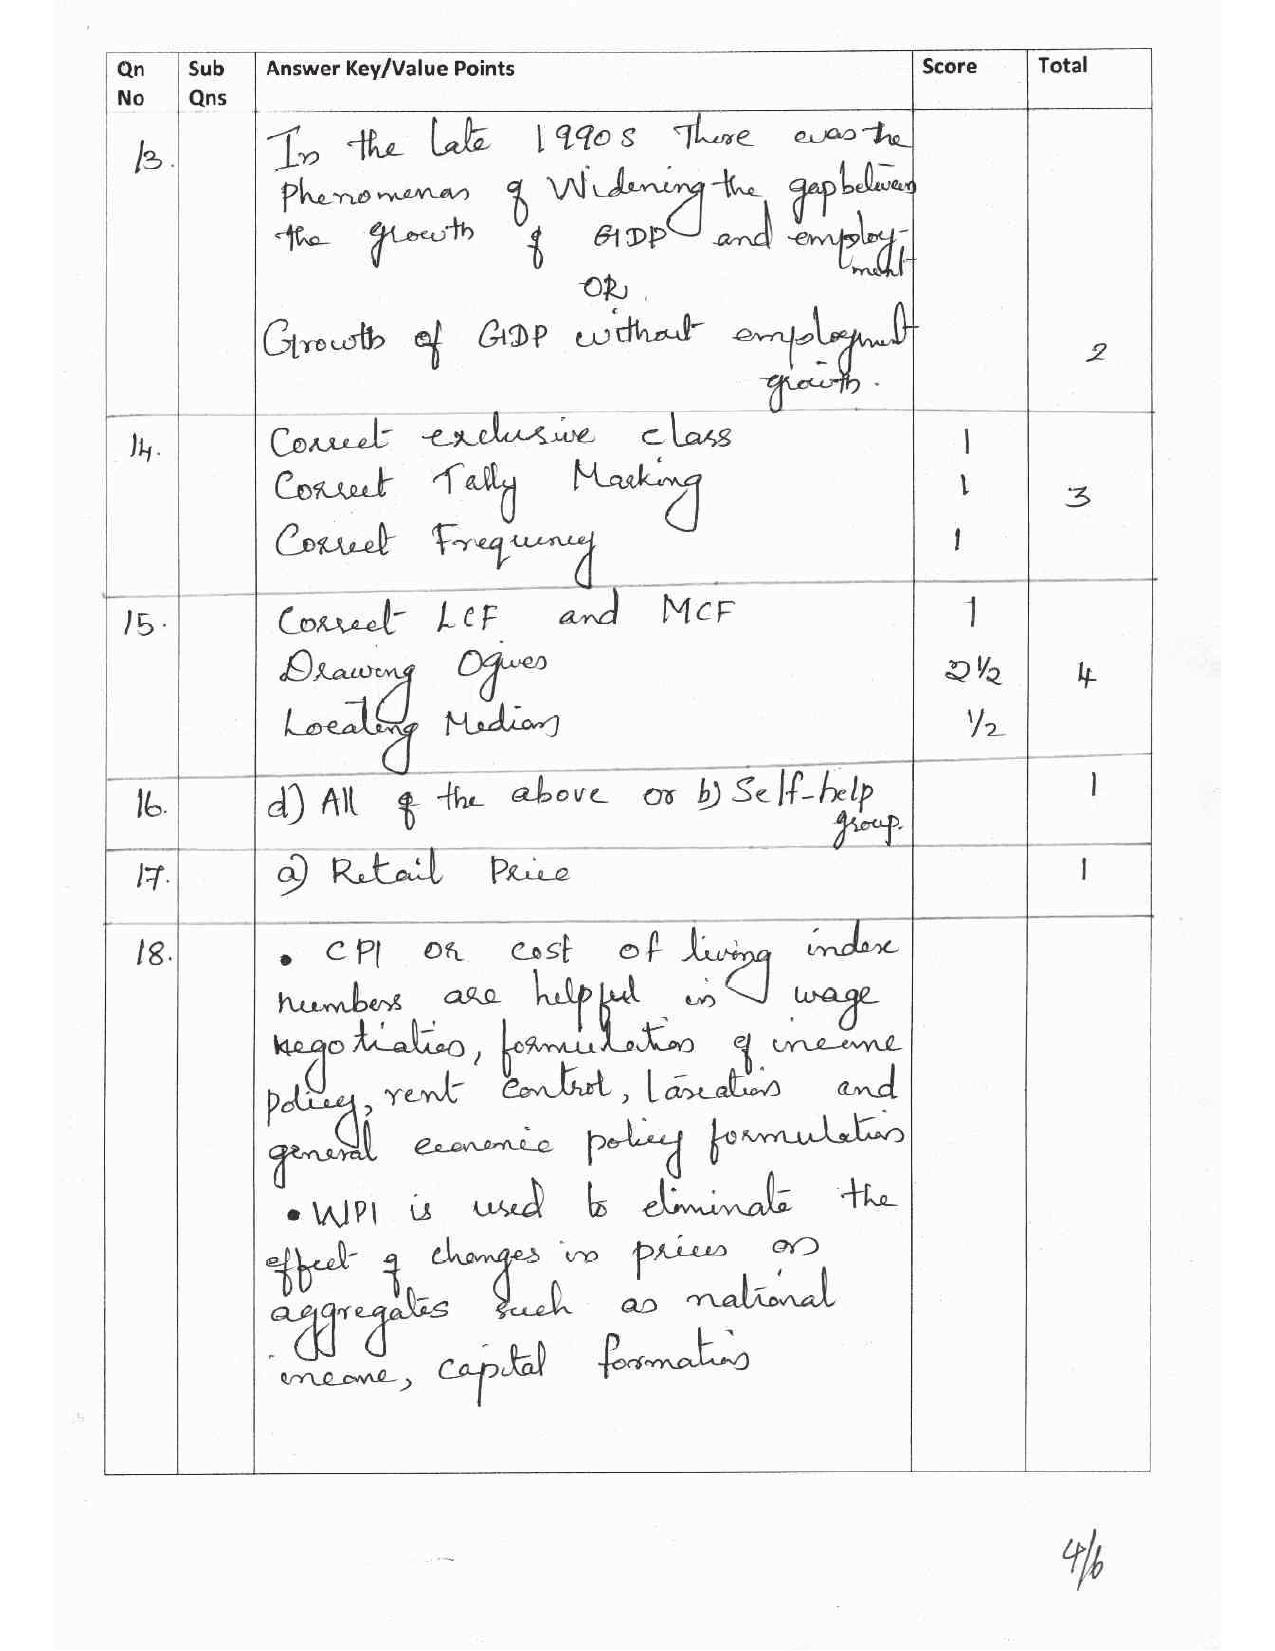 Qn Sub Answer Key/Value Points Score Total
No Qns
13. In the late 1990s There was the
Phenomenon of Widening the gap between
the growth of GDP and employ-
ment
OR
Growth of GDP without employment
2
growth.
14. Correct exclusive class 1
Correct Tally Marking 1 3
Correct Frequency 1
15. Correct LCF and MCF 1
Drawing Ogives 2½ 4
Locating Median ½
16. d) All of the above or b) Self-help 1
group.
17. a) Retail Price 1
18. • CPI or cost of living index
numbers are helpful in wage
negotiation, formulation of income
policy, rent control, taxation and
general economic policy formulation
• WPI is used to eliminate the
effect of changes in prices on
aggregates such as national
income, capital formation
4/6